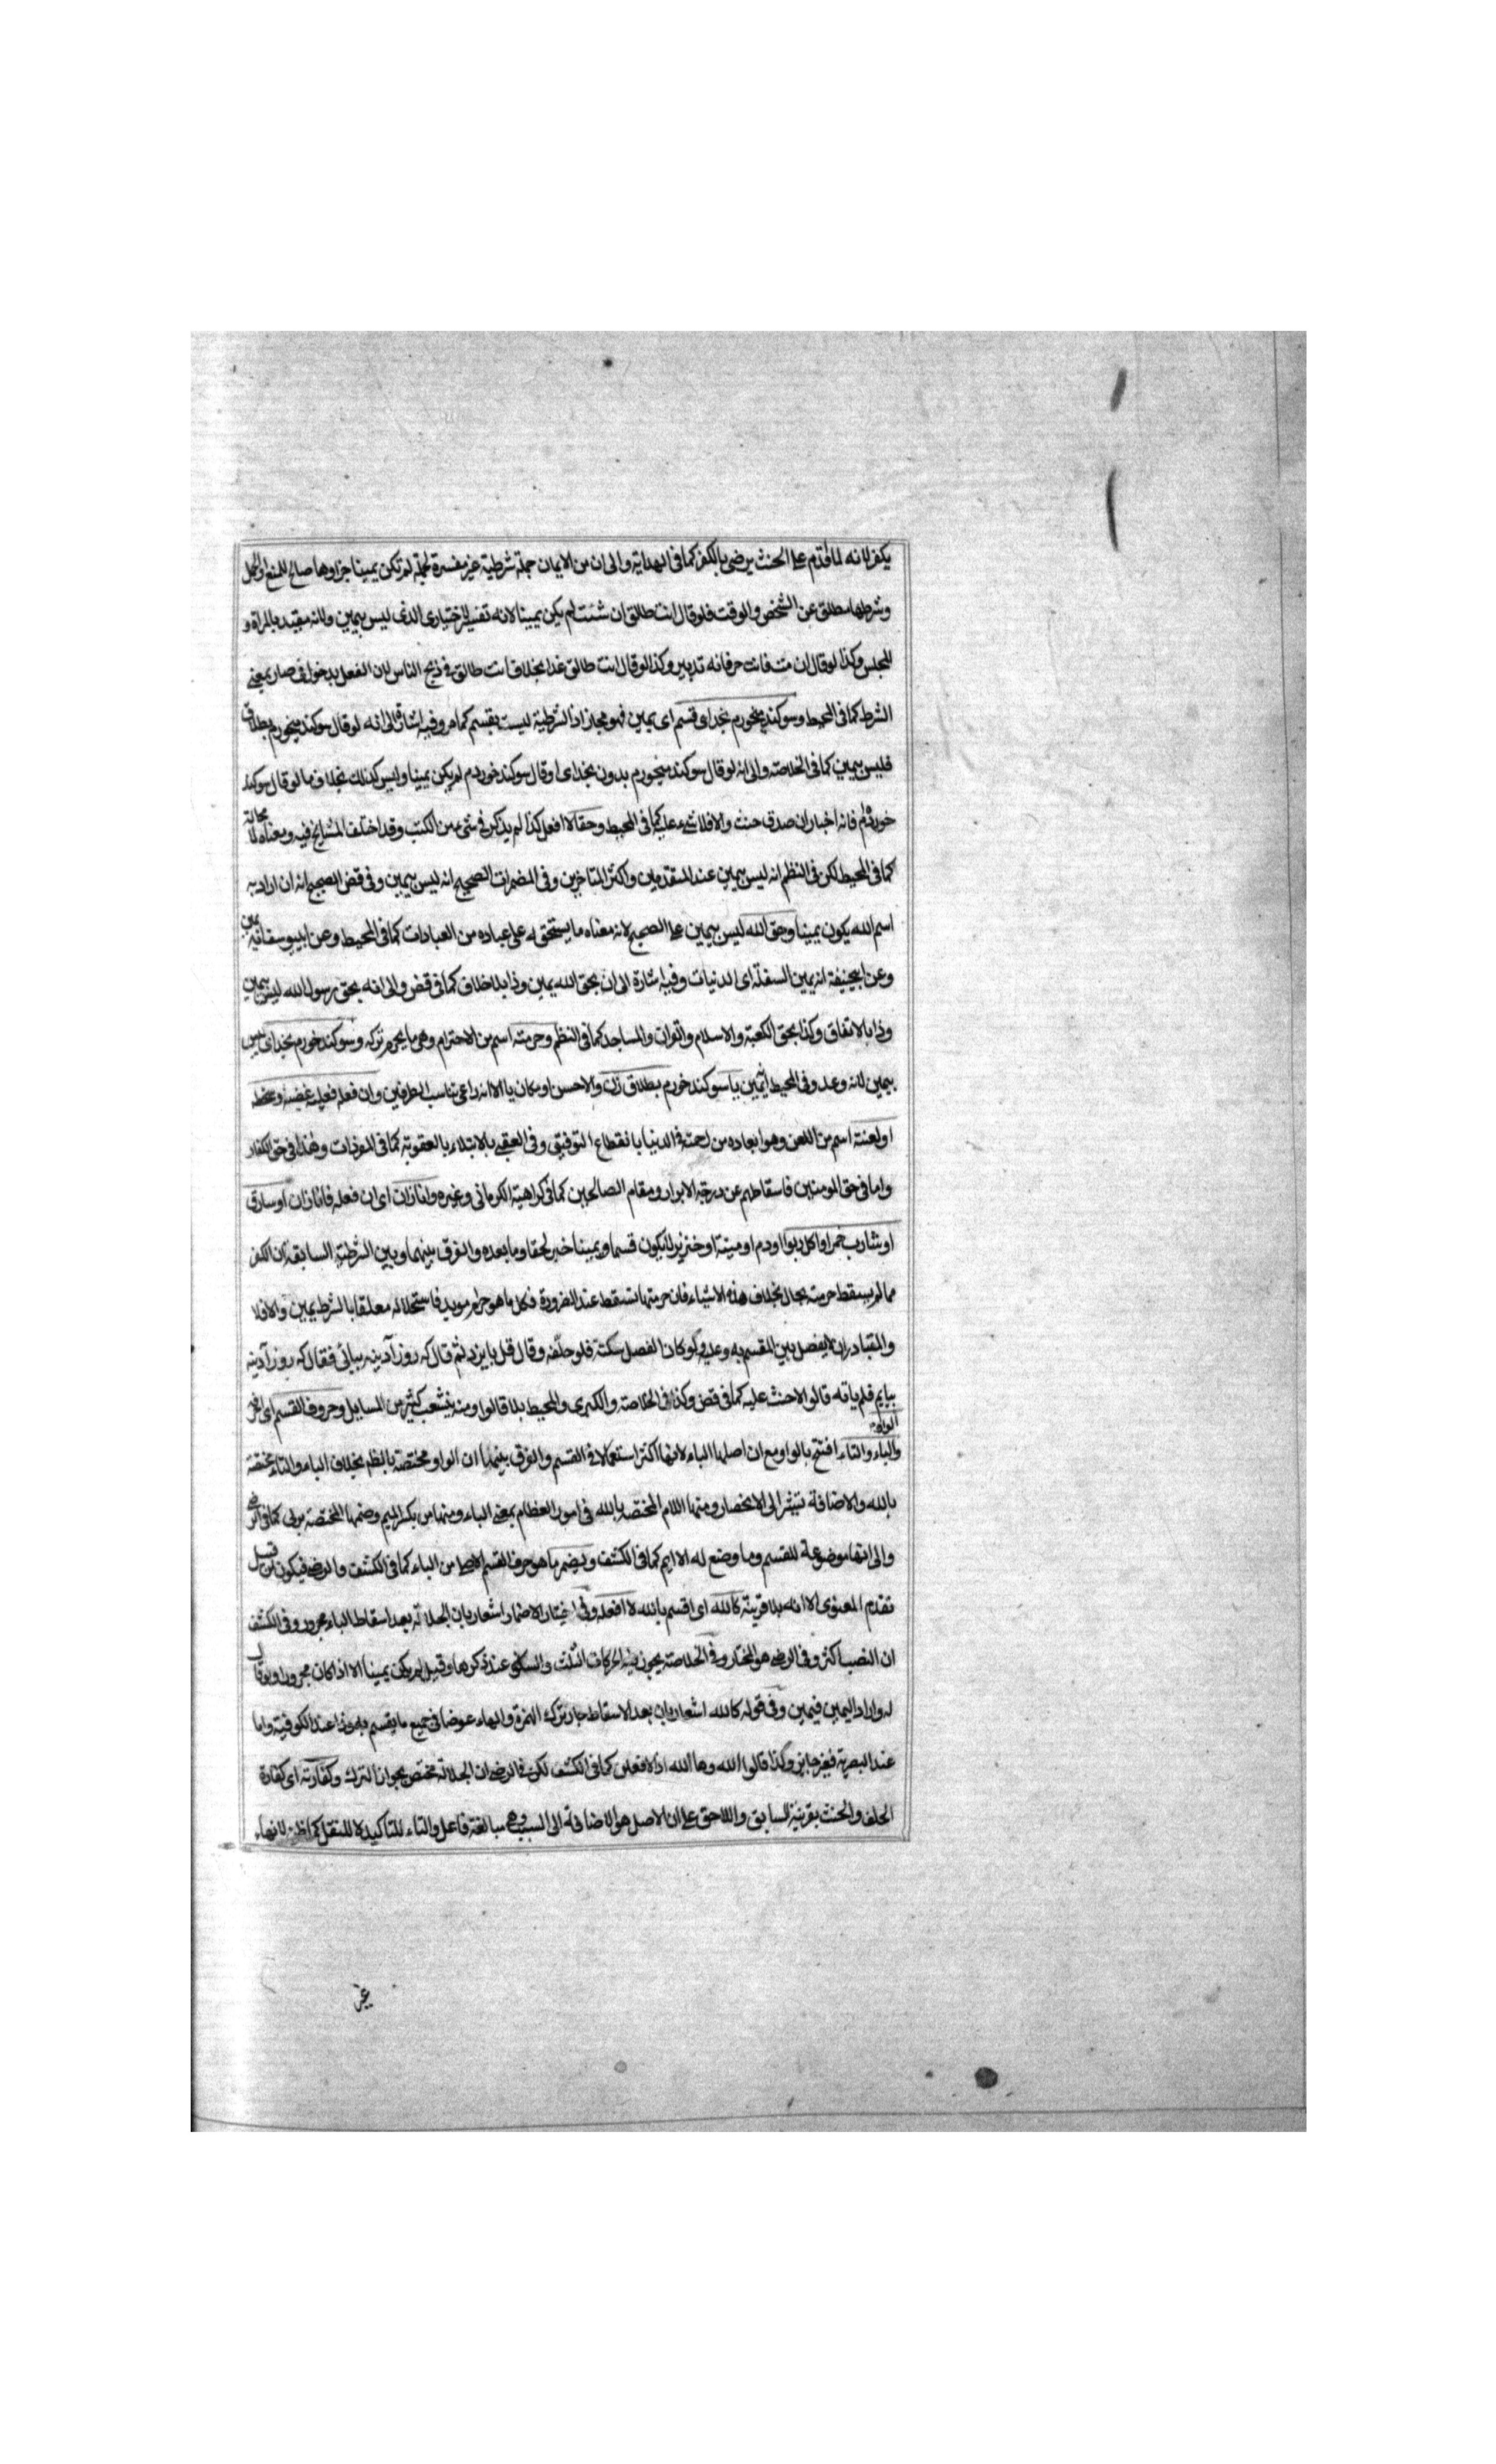 يكفر لانه لما اقدم على الحنث يرضى بالكفر كما فى الهداية والى ان من الايمان جملة شرطية غير مفسرة لجملة لم تكن يمينا جزاوها صالح للمنع او الحمل
وشرطها مطلق عن الشخص والوقت فلو قال انت طالق ان شئت لم يكن يمينا لانه تفسير للاختيارى الذى ليس بيمين ولانه مقيد بالمراة و
المجلس وكذا لو قال ان مت فانت حر فانه تدبير وكذا لو قال انت طالق غدا بخلاف انت طالق فى ذبح الناس لان الفعل بدخول فى صار بمعنى
الشرط كما فى المحيط وسوكند ميخورم بخداى قسم اى يمين فهو مجاز اذ الشرطية ليست بقسم كما مر وفيه اشارة الى انه لو قال سوكند ميخورم بطلاق
فليس بيمين كما فى الخلاصة والى انه لو قال سوكند ميخورم بدون بخداى او قال سوكند خوردم لم يكن يمينا وليس كذلك بخلاف ما لو قال سوكند
خورده ام فانه اخبار ان صدق حنث والا فلا شىء عليه كما فى المحيط وحقا لا افعل كذا لم يذكر فى شىء من الكتب وقد اختلف المشايخ فيه ومعناه لا محالة
كما فى المحيط لكن فى النظم انه ليس بيمين عند المتقدمين واكثر المتاخرين وفى المضمرات الصحيح انه ليس بيمين وفى قض الصحيح انه ان اراد به
اسم الله يكون يمينا وحق الله ليس بيمين على الصحيح لانه معناه ما يستحق له على عباده من العبادات كما فى المحيط وعن ابيوسف انه يمين
وعن ابيحنيفة انه يمين السفلة اى الدنيات وفيه اشارة الى ان بحق الله يمين وذا بلا خلاف كما فى قض والى انه بحق رسول الله ليس بيمين
وذا بالاتفاق وكذا بحق الكعبة والاسلام والقران والمساجد كما فى النظم وحرمته اسم من الاحترام وهى ما يحرم تركه وسوكند خورم بخداى ليس
بيمين لانه وعد وفى المحيط انه يمين يا سوكند خورم بطلاق زن والاحسن او مكان يا الا انه راعى تناسب الطرفين وان فعله فعليه غضبه وسخطه
او لعنته اسم من اللعن وهو ابعاده من رحمته فى الدنيا بانقطاع التوفيق وفى العقبى بالابتلاء بالعقوبة كما فى المفردات وهذا فى حق الكفار
واما فى حق المومنين فاسقاطهم عن درجة الابرار ومقام الصالحين كما فى كراهية الكرمانى وغيره وانا زان اى ان فعله فانا زان او سارق
او شارب خمر او اكل ربوا او دم او ميتة او خنزير لا يكون قسما ويمينا خبر لحقا وما بعده والفرق بينهما وبين الشرطية السابقة ان الكفر
مما لم يسقط حرمته بحال بخلاف هذه الاشياء فان حرمتها تسقط عند الضرورة فكل ما هو حرام موبد فاستحلاله معلقا بالشرط يمين والا فلا
والمتبادر ان لا يفصل بين المقسم به وعليه ولو كان الفصل سكتة فلو حلفه وقال قل بايزد ثم قال كه روز آدينه بيائى فقال كه روز آدينه
بيايم فلم ياته قالوا لا حنث عليه كما فى قض وكذا فى الخلاصة والكبرى والمحيط بلا قالوا ومنه ينشعب كثير من المسايل وحروف القسم اى
الواو
والباء والتاء افتتح بالواو مع ان اصلها الباء لانها اكثر استعمالا فى القسم والفرق بينهما ان الواو مختصة بالظهر بخلاف الباء والتاء مختصة
بالله والاضافة تشير الى الانحصار ومنها اللام المختصة بالله فى امور العظام بمعنى الباء ومنها من بكسر الميم وضمها المختصة بربى كما فى الرضى
والى انها موضوعة للقسم وما وضع له الا ايم كما فى الكشف ويضمر ما هو حرف القسم الاصل من الباء كما فى الكشف والرضى فيكون من قبيل
تقدم المعنوى الا انه بلا قرينة كالله اى اقسم بالله لا افعله وفى اختيار الاضمار اشعار بان الجلالة بعد اسقاط الباء مجرور وفى الكشف
ان النصب اكثر وفى الرضى هو المختار وفى الخلاصة يجوز فيه الحركات الثلث والسكون عند ذكرها وقيل لم يكن يمينا الا اذا كان مجرورا ويقال
له واراد اليمين فيمين وفى قوله كالله اشعار بان بعد الاسقاط جاز ترك الهمزة والهاء عوضا فى جميع ما يقسم به وذا عند الكوفية واما
عند البصرية فغير جايز وكذا قالوا الله وها الله اذ لا فعلن كما فى الكشف لكن فى الرضى ان الجلالة مختص بجواز الترك وكفارته اى كفارة
الحلف والحنث بقرينة السابق واللاحق على ان الاصل هو الاضافة الى السبب وهى مبالغة فاعل والتاء للتاكيد لا للنقل كما ظن لانهاء
غير